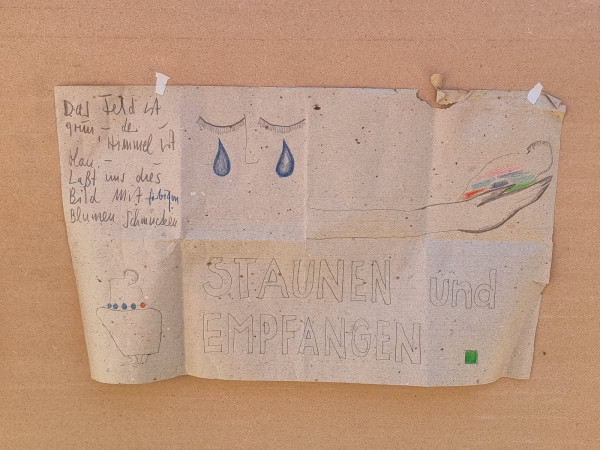 Das Feld ist
grün – der
Himmel ist
blau. –
Laßt uns dies
Bild mit farbigen
Blumen schmücken
STAUNEN und
EMPFANGEN